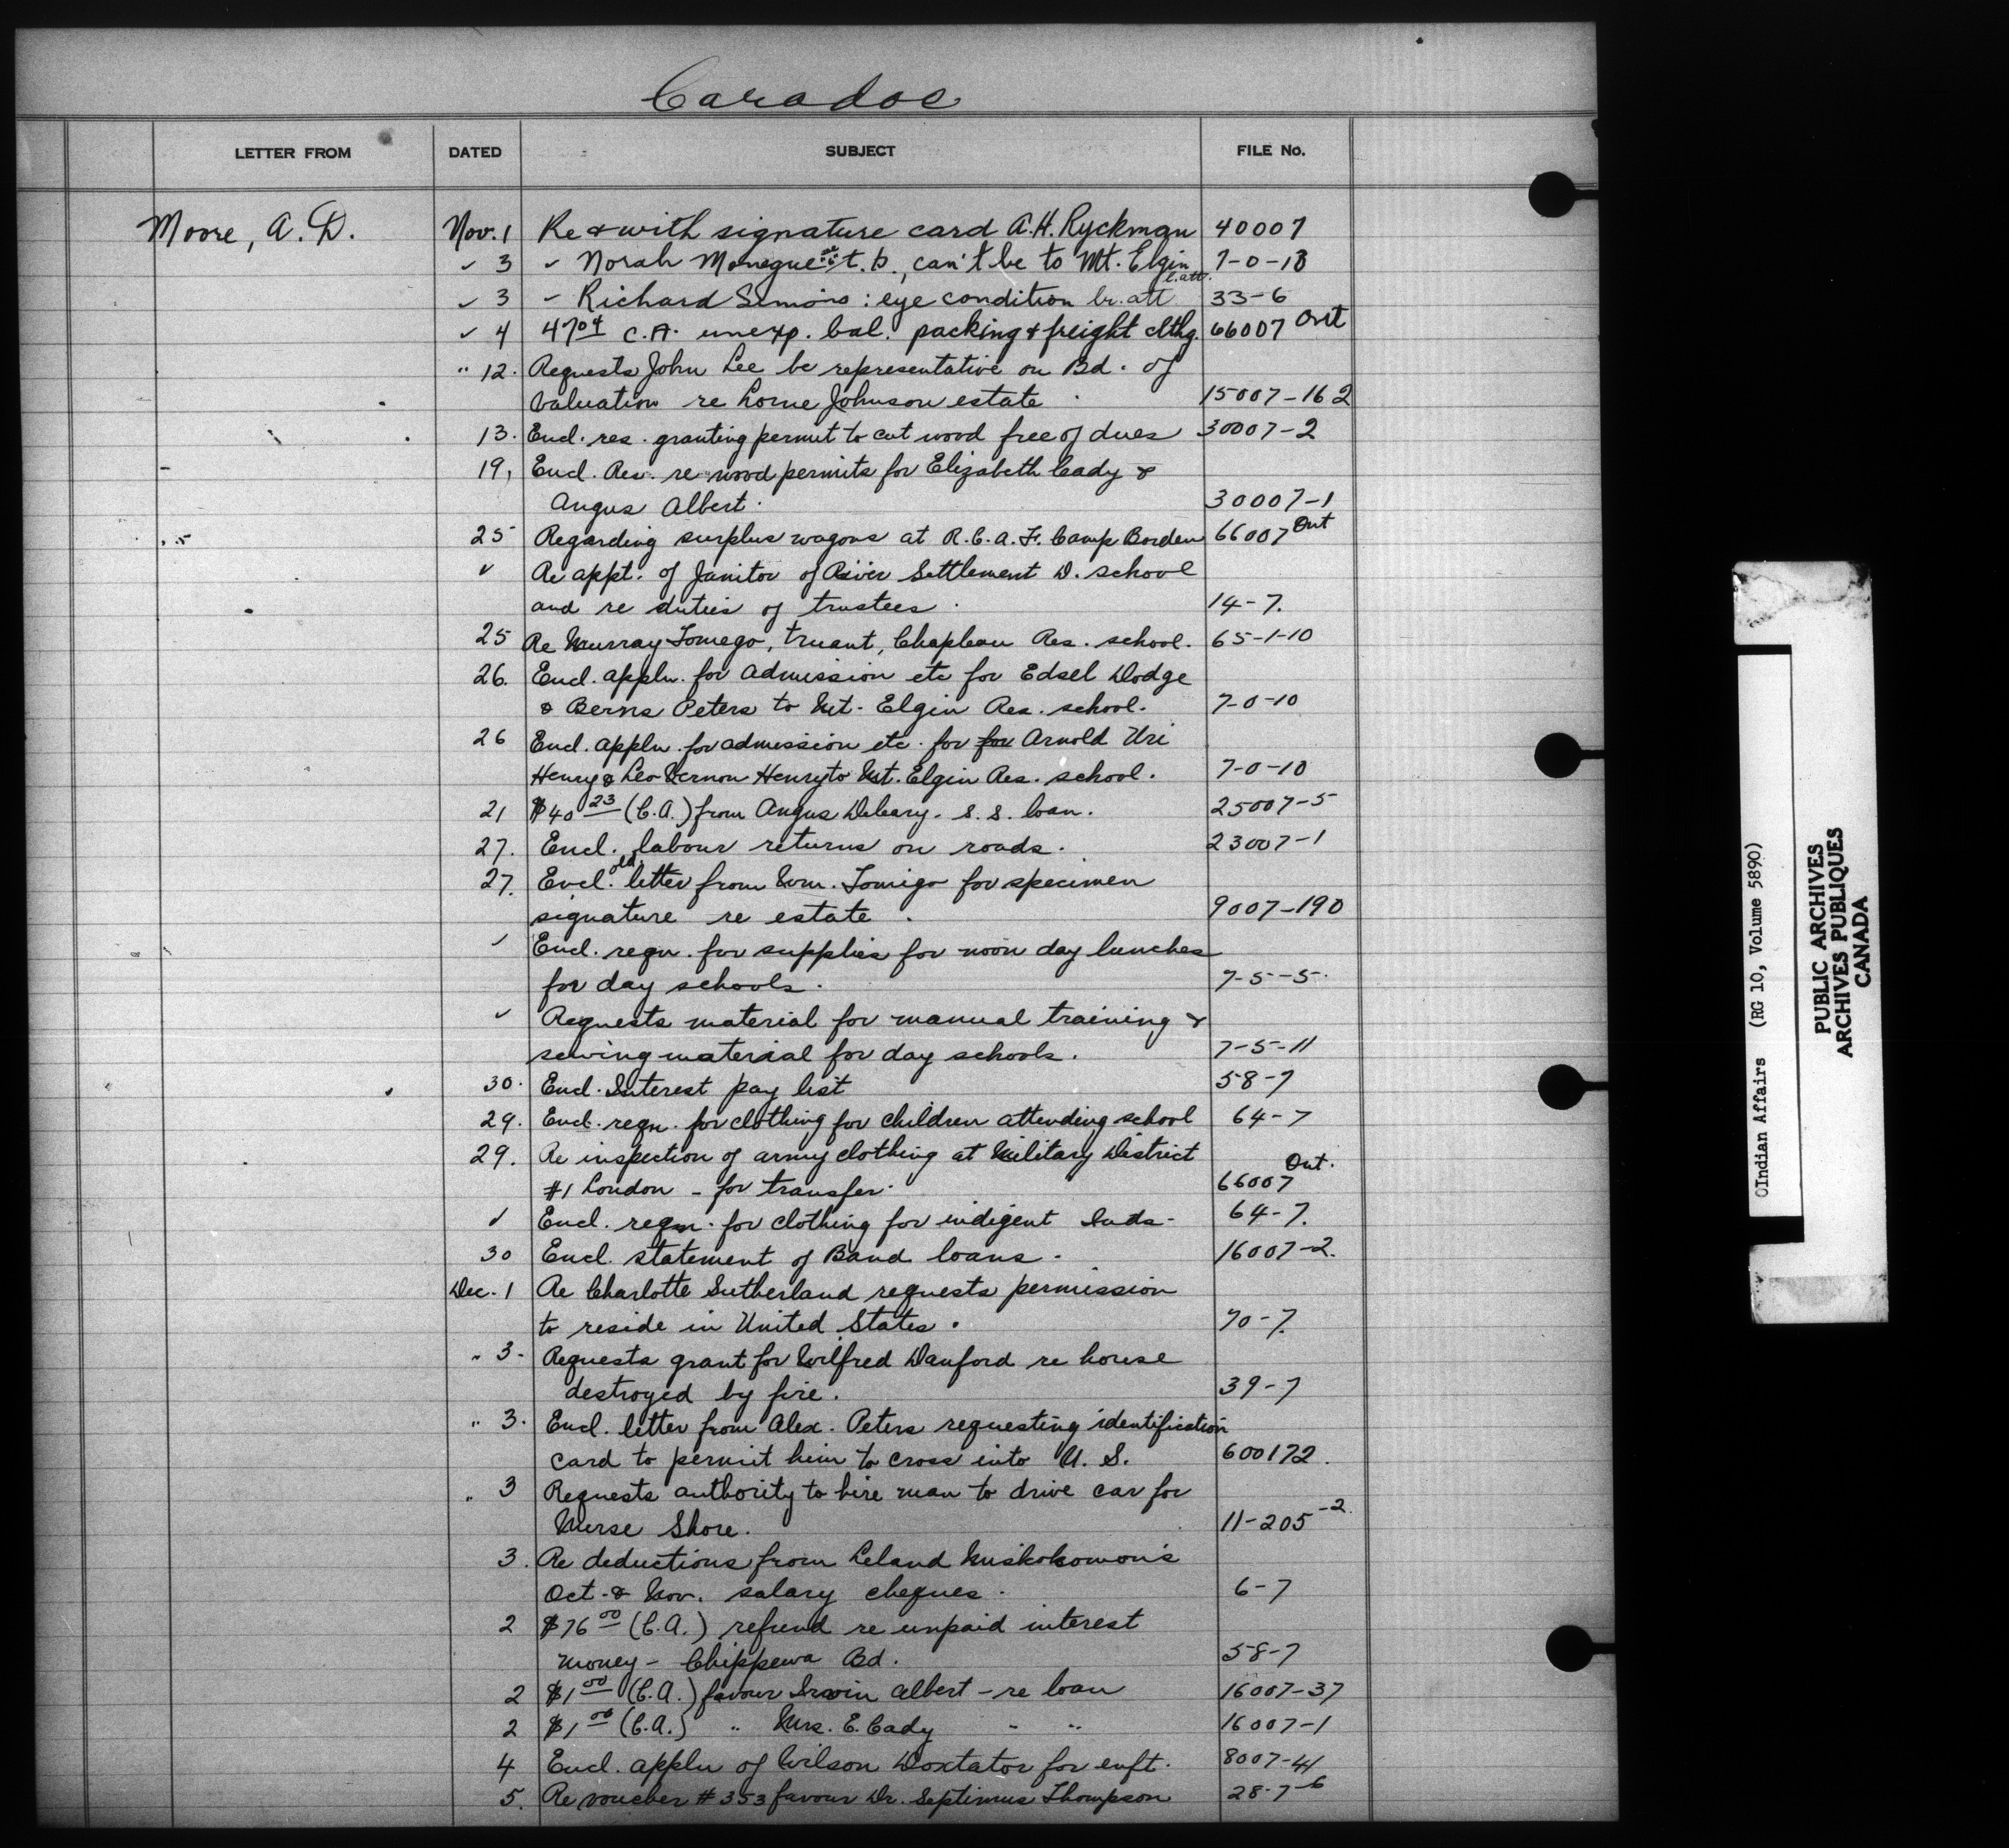 Caradoc
LETTER FROM DATED SUBJECT FILE No.
Moore, A. D. Nov. 1 Re & with signature card A.H. Ryckman 40007
✓ 3 ✓ Norah t.b., can't be to Mt. Elgin 7-0-13
✓ 3 - Richard Simons : eye condition br. att 33-6
✓ 4 47.04 C.A. unexp. bal. packing & freight clthg. 66007 Ont
" 12. Requests John Lee be representative on Bd. of
Valuation re Lorne Johnson estate 15007-162
13. Encl. res. granting permit to cut wood free of dues 30007-2
19, Encl. Res. re wood permits for Elizabeth Cady &
Angus Albert. 30007-1
25 Regarding surplus wagons at R.C.A.F. Camp Borden 66007 Ont
✓ Re appt. of Janitor of River Settlement D. school
and re duties of trustees. 14-7.
25 Re Murray Tomego, truant, Chapleau Res. school. 65-1-10
26. Encl. appln. for admission etc for Edsel Dodge
& Berns Peters to Mt. Elgin Res. school. 7-0-10
26 Encl. appln. for admission etc. for for Arnold Uri
Henry & Leo Vernon Henry to Mt. Elgin Res. school. 7-0-10
21 $40 23 (C.A.) from Angus Deleary. S.S. loan. 25007-5
27. Encl. labour returns on roads. 23007-1
27. Encl. old letter from Wm. Tomigo for specimen
signature re estate. 9007-190
✓ Encl. reqn. for supplies for noon day lunches
for day schools. 7-5-5.
✓ Requests material for manual training &
sewing material for day schools. 7-5-11
30. Encl. Interest pay list 58-7
29. Encl. reqn. for clothing for children attending school 64-7
29. Re inspection of army clothing at Military District
#1 London - for transfer. 66007 Ont.
✓ Encl. reqn. for clothing for indigent Inds. 64-7.
30 Encl. statement of Band loans. 16007-2.
Dec. 1 Re Charlotte Sutherland requests permission
to reside in United States. 70-7.
" 3. Requests grant for Wilfred Danford re house
destroyed by fire. 39-7
" 3. Encl. letter from Alex. Peters requesting identification
card to permit him to cross into U.S. 600172.
" 3 Requests authority to hire man to drive car for
Nurse Shore. 11-205-2
3. Re deductions from Leland Muskokomon's
Oct. & Nov. salary cheques. 6-7
2 $76 00 (C.A.) refund re unpaid interest
money - Chippewa Bd. 58-7
2 $1 00 (C.A.) favour Irwin Albert - re loan 16007-37
2 $1 00 (C.A.) " Mrs. E. Cady - " 16007-1
4 Encl. appln of Wilson Doxtator for enft. 8007-41
5. Re voucher #353 favour Dr. Septimus Thompson 28-7-6
Indian Affairs (RG 10, Volume 5890)
PUBLIC ARCHIVES
ARCHIVES PUBLIQUES
CANADA